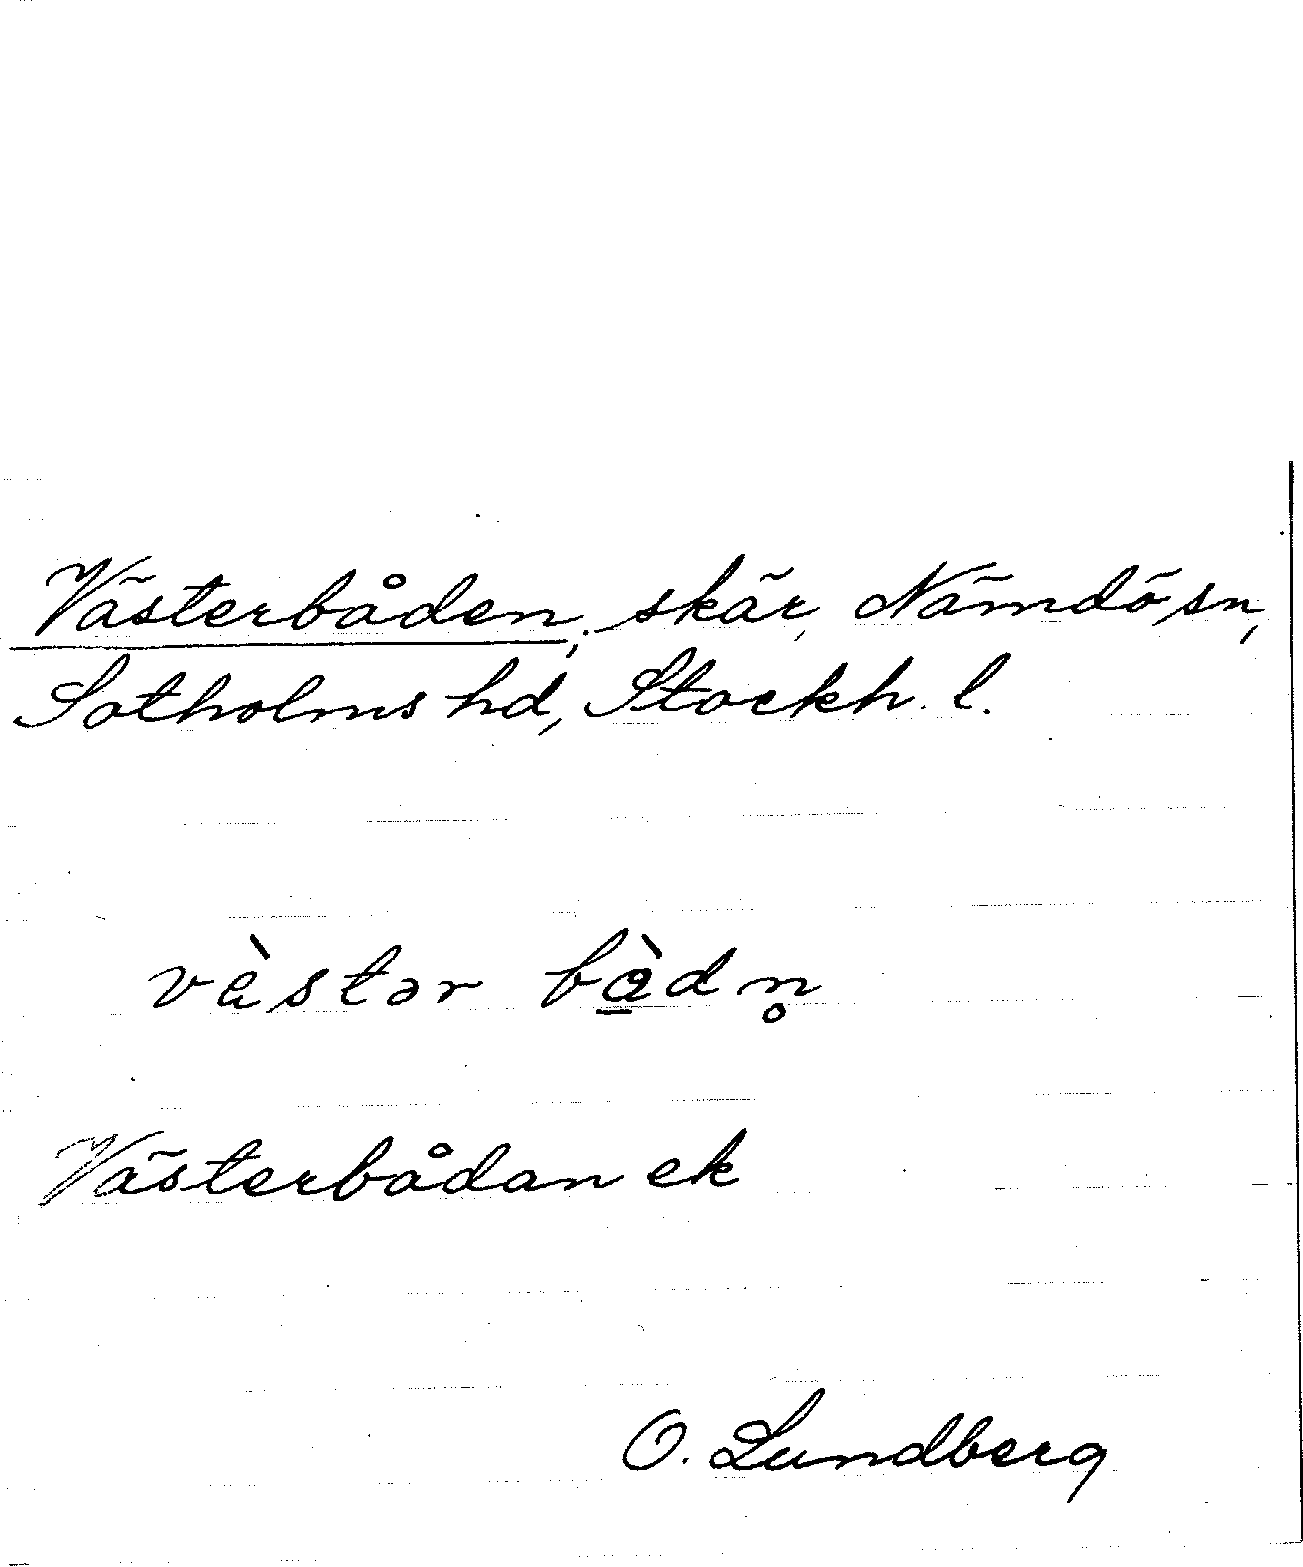 Västerbåden, skär, Nämdö sn,
Sotholms hd, Stockh. l.
vàstər bå̱̀dn̥
Västerbådan ek
O. Lundberg